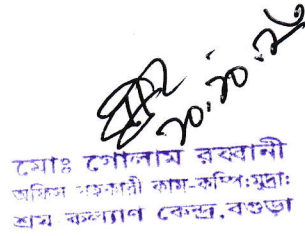 ২০.১০.২৬
মোঃ গোলাম রব্বানী
অফিস সহকারী কাম-কম্পি:মুদ্রা:
শ্রম কল্যাণ কেন্দ্র,বগুড়া